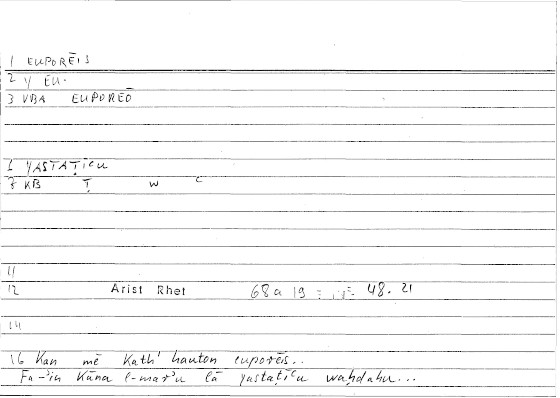 1 EUPORĒIS
2 Y EU.
3 VBA EUPOREŌ
1 YASTAṬĪᶜU
3 KB Ṭ W C
11
12 Arist Rhet 68a 19 = 48.21
14
16 Kan mē Kath' hauton euporēis..
Fa-'in Kāna l-mar'u lā yastaṭīᶜu waḥdahu...